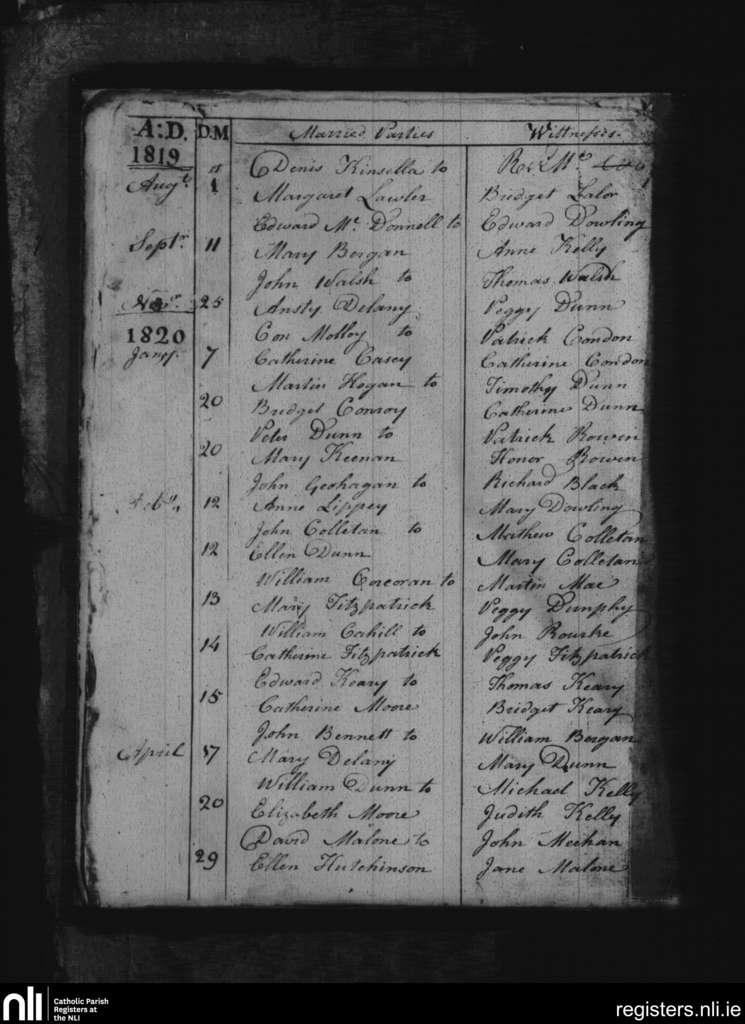 A:D. D.M Married Parties Wittnesses.
1819
Denis Kinsella to Revd Mr.
Augt. 1st Margaret Lawler Bridget Lalor
Edward Mc. Donnell to Edward Dowling
Septr. 11 Mary Bergan Anne Kelly
John Walsh to Thomas Walsh
Novr. 25 Ansty Delany Peggy Dunn
1820 Con Molloy to Patrick Condon
Jany. 7 Catherine Casey Catherine Condon
Martin Hogan to Timothy Dunn
20 Bridget Conroy Catherine Dunn
Peter Dunn to Patrick Bowen
20 Mary Keenan Honor Bowen
John Geohagan to Richard Black
Feby. 12 Anne Lippey Mary Dowling
John Colletan to Mathew Colletan
12 Ellen Dunn Mary Colletan
William Corcoran to Martin Mae
13 Mary Fitzpatrick Peggy Dunphy
William Cahill to John Rourke
14 Catherine Fitzpatrick Peggy Fitzpatrick
Edward Keary to Thomas Keary
15 Catherine Moore Bridget Keary
John Bennett to William Bergan
April 17 Mary Delany Mary Dunn
William Dunn to Michael Kelly
20 Elizabeth Moore Judith Kelly
David Malone to John Meehan
29 Ellen Hutchinson Jane Malone
nli Catholic Parish
Registers at
the NLI
registers.nli.ie